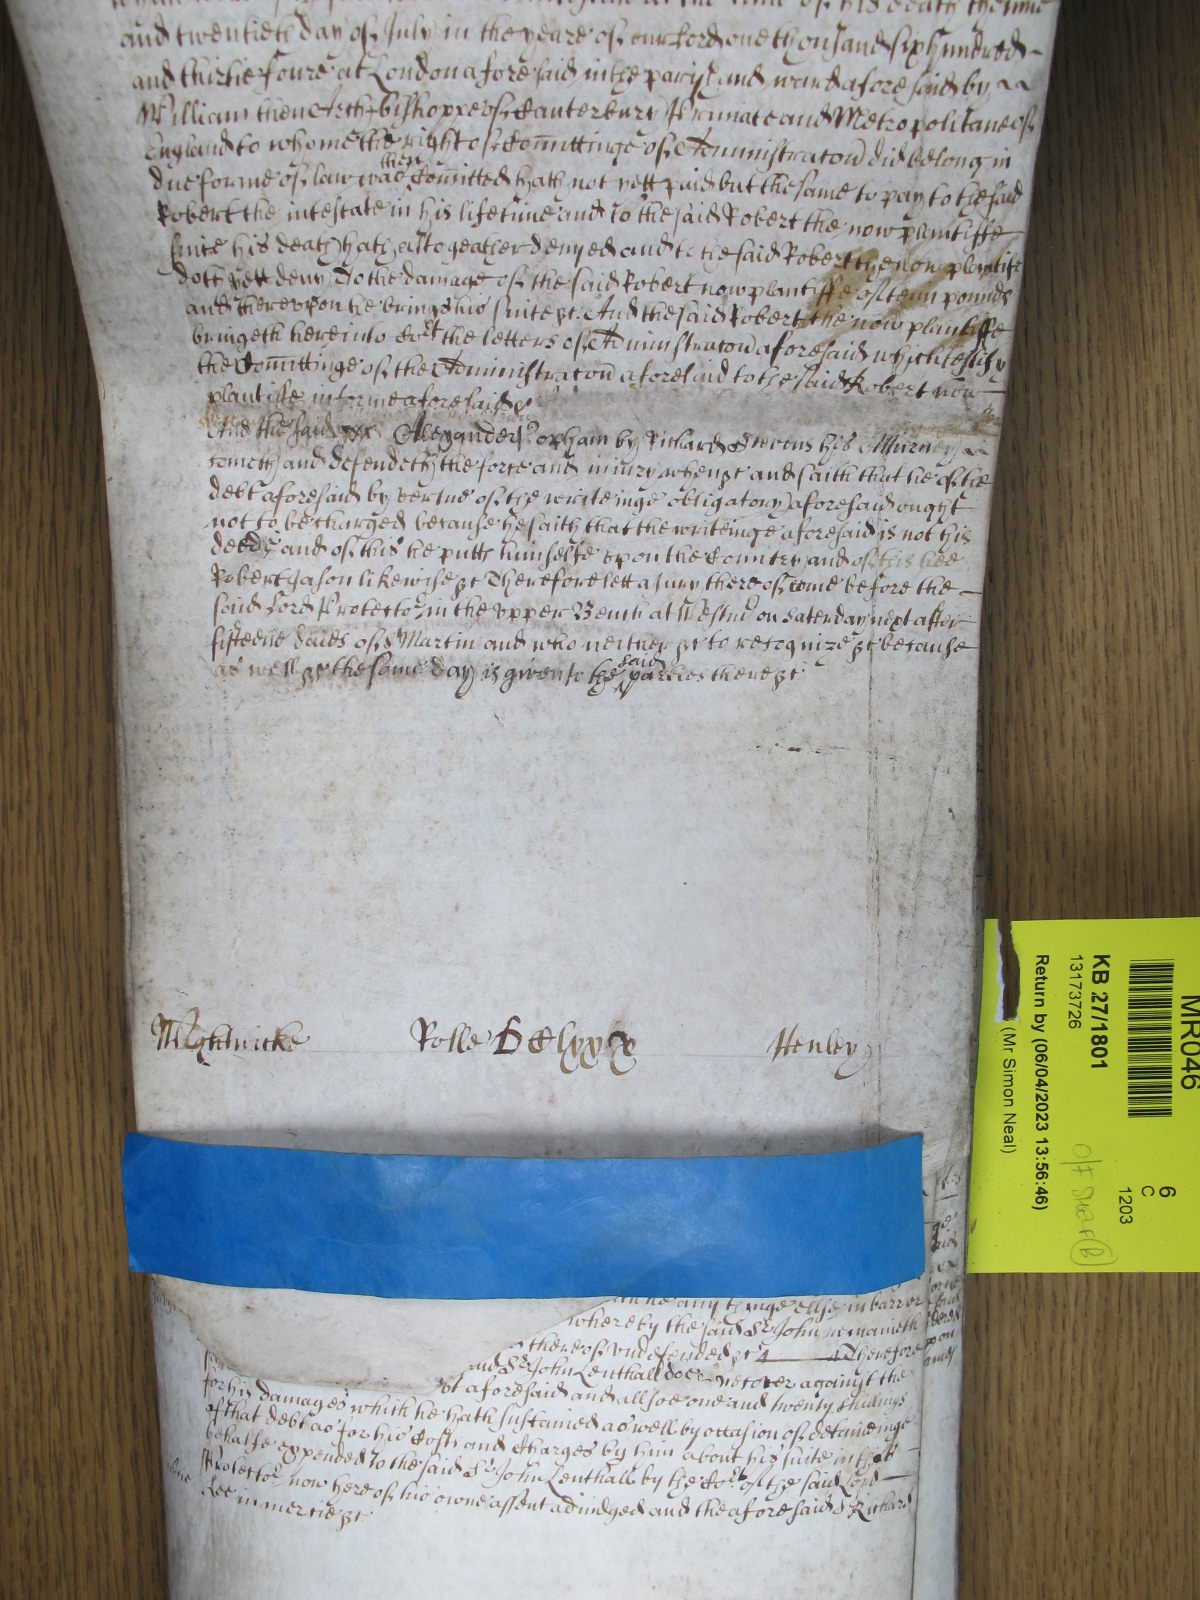 at the time of his death the nine
and twentieth day of July in the yeare of our Lord one thousand six hundred
and thirtie foure at London aforesaid in the parish and ward aforesaid by
William then Arch-bishoppe of Canterbury Primate and Metropolitane of
England to whome the right of Comittinge of Administracon did belong in
due forme of law was then Comitted hath not yett paid but the same to pay to the said
Robert the intestate in his life time and to the said Robert the now plantiffe
since his death hath altogeather denyed and to the said Robert the now plantiffe
doth yett deny To the damage of the said Robert now plantiffe of tenn pounds
and thereupon he brings his suite &c And the said Robert the now plantiffe
bringeth here into Cort the letters of Administracon aforesaid which testify
the Comittinge of the Administracon aforesaid to the said Robert now
plantiffe in forme aforesaid &c
And the said Alexander Popham by Richard Stevens his Atturney
cometh and defendeth the force and injury when &c and saith that he of the
debt aforesaid by vertue of the writeinge obligatory aforesaid ought
not to be charged because he saith that the writeinge aforesaid is not his
deede and of this he putts himselfe upon the Country and of this hee
Robert Jason likewise &c Therefore lett a Jury thereof come before the
said Lord Protector in the upper Bench at Westmr on Saterday next after
fifteene daies of St Martin and who neither &c to recognize &c because
as well &c the same day is given to the said parties there &c
Rolle DClxxx Henley
any thinge ellse in barr or
whereby the said Sr John remaineth
thereof undefended &c Therefore
and Sr John Lenthall doe recover against the
debt aforesaid and allsoe one and twenty shillings
for his damages which he hath sustained as well by occasion of detaineinge
of that debt as for his Costs and Charges by him about his suite in that
behalfe expended to the said Sr John Lenthall by the Cort of the said Lord
Protector now here of his owne assent adiudged and the aforesaid Sr Richard
bee in mercie &c
MR046
6
C
1203
KB 27/1801
13173726
Return by (06/04/2023 13:56:46)
(Mr Simon Neal)